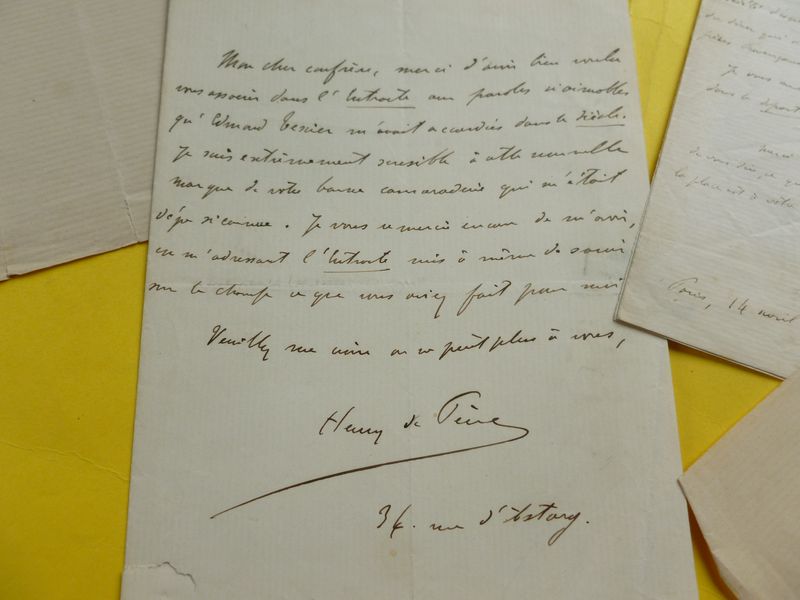 Mon cher confrère, merci d'avoir bien voulu
vous associer dans l'Entracte aux paroles si aimables
qu'Edmond Texier m'avait accordées dans le Siècle.
Je suis extrêmement sensible à cette nouvelle
marque de votre bonne camaraderie qui m'était
déjà si connue. Je vous remercie encore de m'avoir,
en m'adressant l'Entracte mis à même de savoir
sur le champ ce que vous aviez fait pour moi
Veuillez me croire on ne peut plus à vous,
Henry de Pène
34. rue d'Astorg.
du désir qui
Je vous
dans le
de vous dire que
la place est à votre
Paris, 14 avril